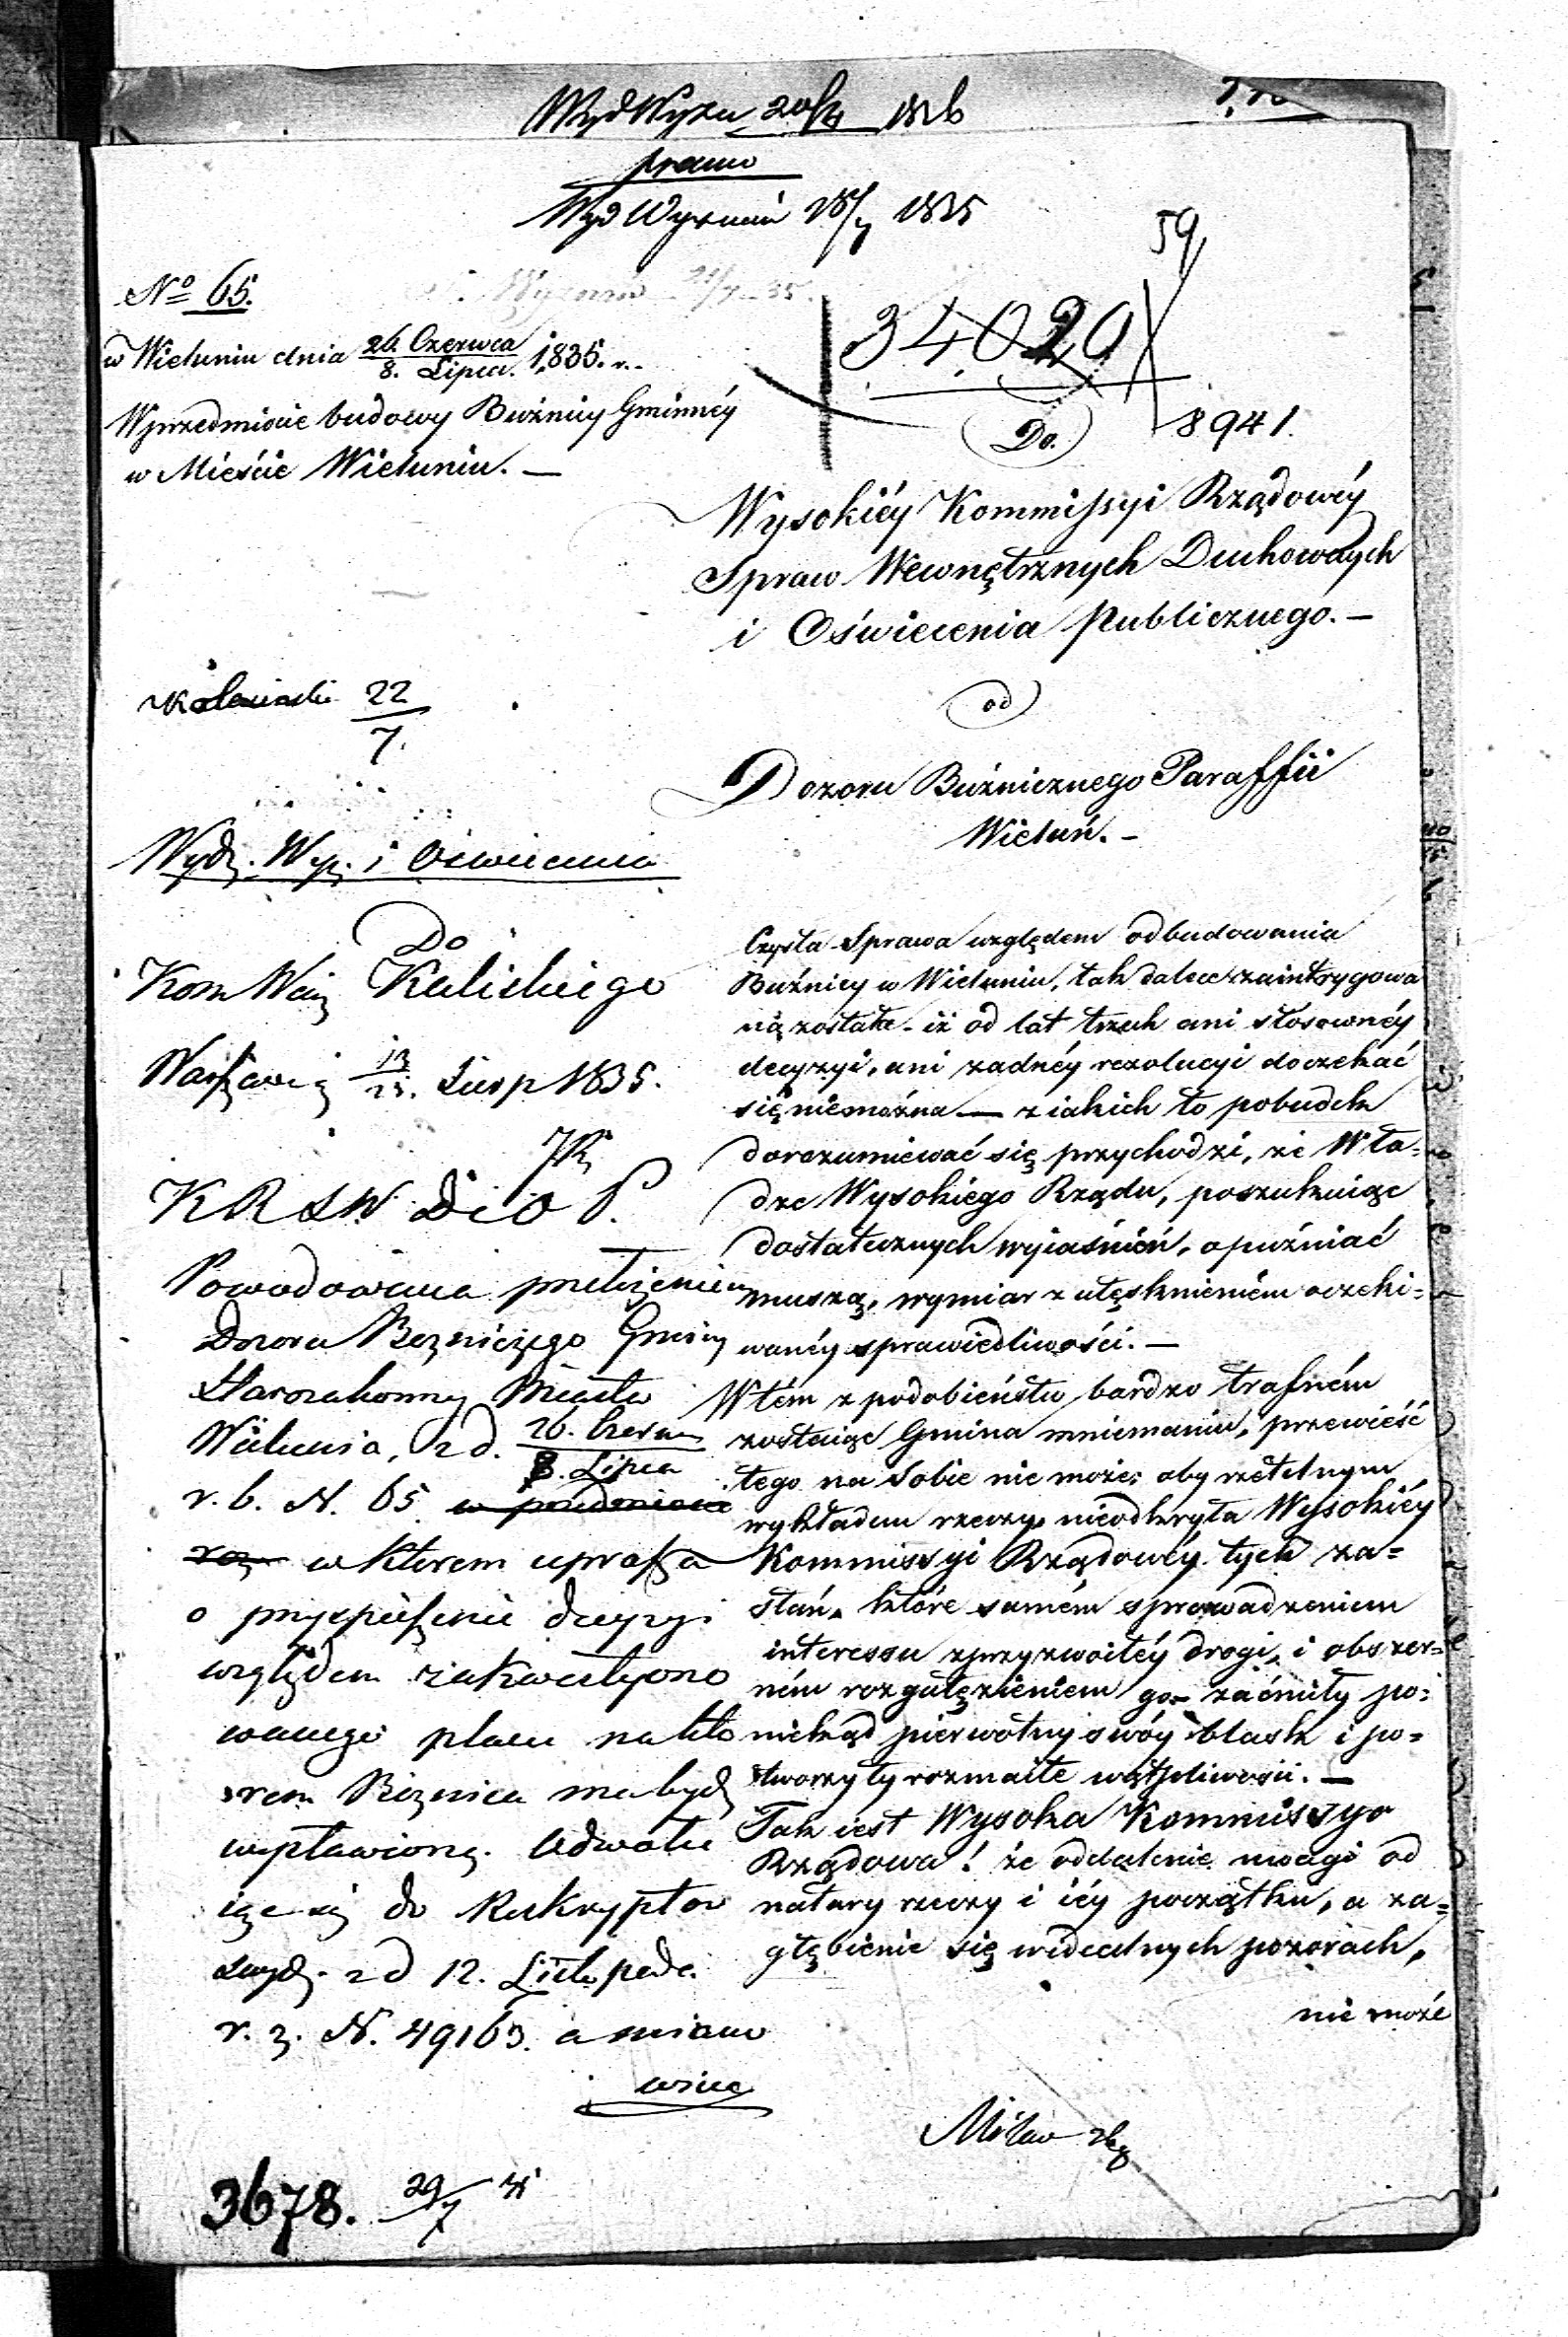 Wyd Wyzn 20/4 1836
prawo
Wyd Wyznań 18/7 1835
59
No 65.
w Wieluniu dnia 26. Czerwca / 8. Lipca. 1,835. r.
Wprzedmiocie budowy Buźnicy Gminnéy
w Mieście Wieluniu. —
34020
8941.
Do.
Wysokiéy Kommissyi Rządowéy
Spraw Wewnętrznych Duchownych
i Oświecenia Publicznego. —
od
Dozoru Buźnicznego Paraffii
Wieluń. —
22/7.
Wydz. Wyz. i Oświecenia
Do
Kom Woj Kaliskiego
Warszawie 13/25. Sierp 1835.
K R S W D i O P.
Powodowana przełożeniem
Dozoru Bożniczego Gminy
Starozakonny Miasta
Wielunia, z d. 26. Czerwc / 8. Lipca
r. b. N. 65 w przedmiocie
w którem uprasza
o przyspieszenie decyzyi
względem zakwestyono
wanego placu na któ
rem Bożnica ma bydź
wystawioną. Odwołu
iąc się do Reskryptów
swych z d 12. Listopada
r. z. N. 49163. a miano
wicie
3678. 29/7
Czysta Sprawa względem odbudowania
Buźnicy w Wieluniu, tak dalece zaintrygowa
ną została - iż od lat trzech ani stosownéy
decyzyi, ani żadnéy rezolucyi doczekać
się niemożna — z iakich to pobudek
dorozumiewać się przychodzi, że Wła-
dze Wysokiego Rządu, poszukuiąc
dostatecznych wyiaśnień, opuźniać
muszą, wymiar z utęsknieniem oczeki-
wanéy sprawiedliwości. —
W tém z podobieństw bardzo trafném
zostaiąc Gmina mniemaniu, przewieść
tego na sobie nie może; aby rzetelnym
wykładem rzeczy nieodkryła Wysokiéy
Kommissyi Rządowéy tych za-
słań, które samém sprowadzeniem
interessu z przyzwoitéy drogi, i obszer-
ném rozgałęzieniem go - zaćmiły po-
niekąd pierwotny swóy blask i po-
tworzyły rozmaite wątpliwości. —
Tak iest Wysoka Kommissyo
Rządowa! że oddalenie uwagi od
natury rzeczy i iéy początku, a za-
głębienie się w idealnych pozorach,
nie może